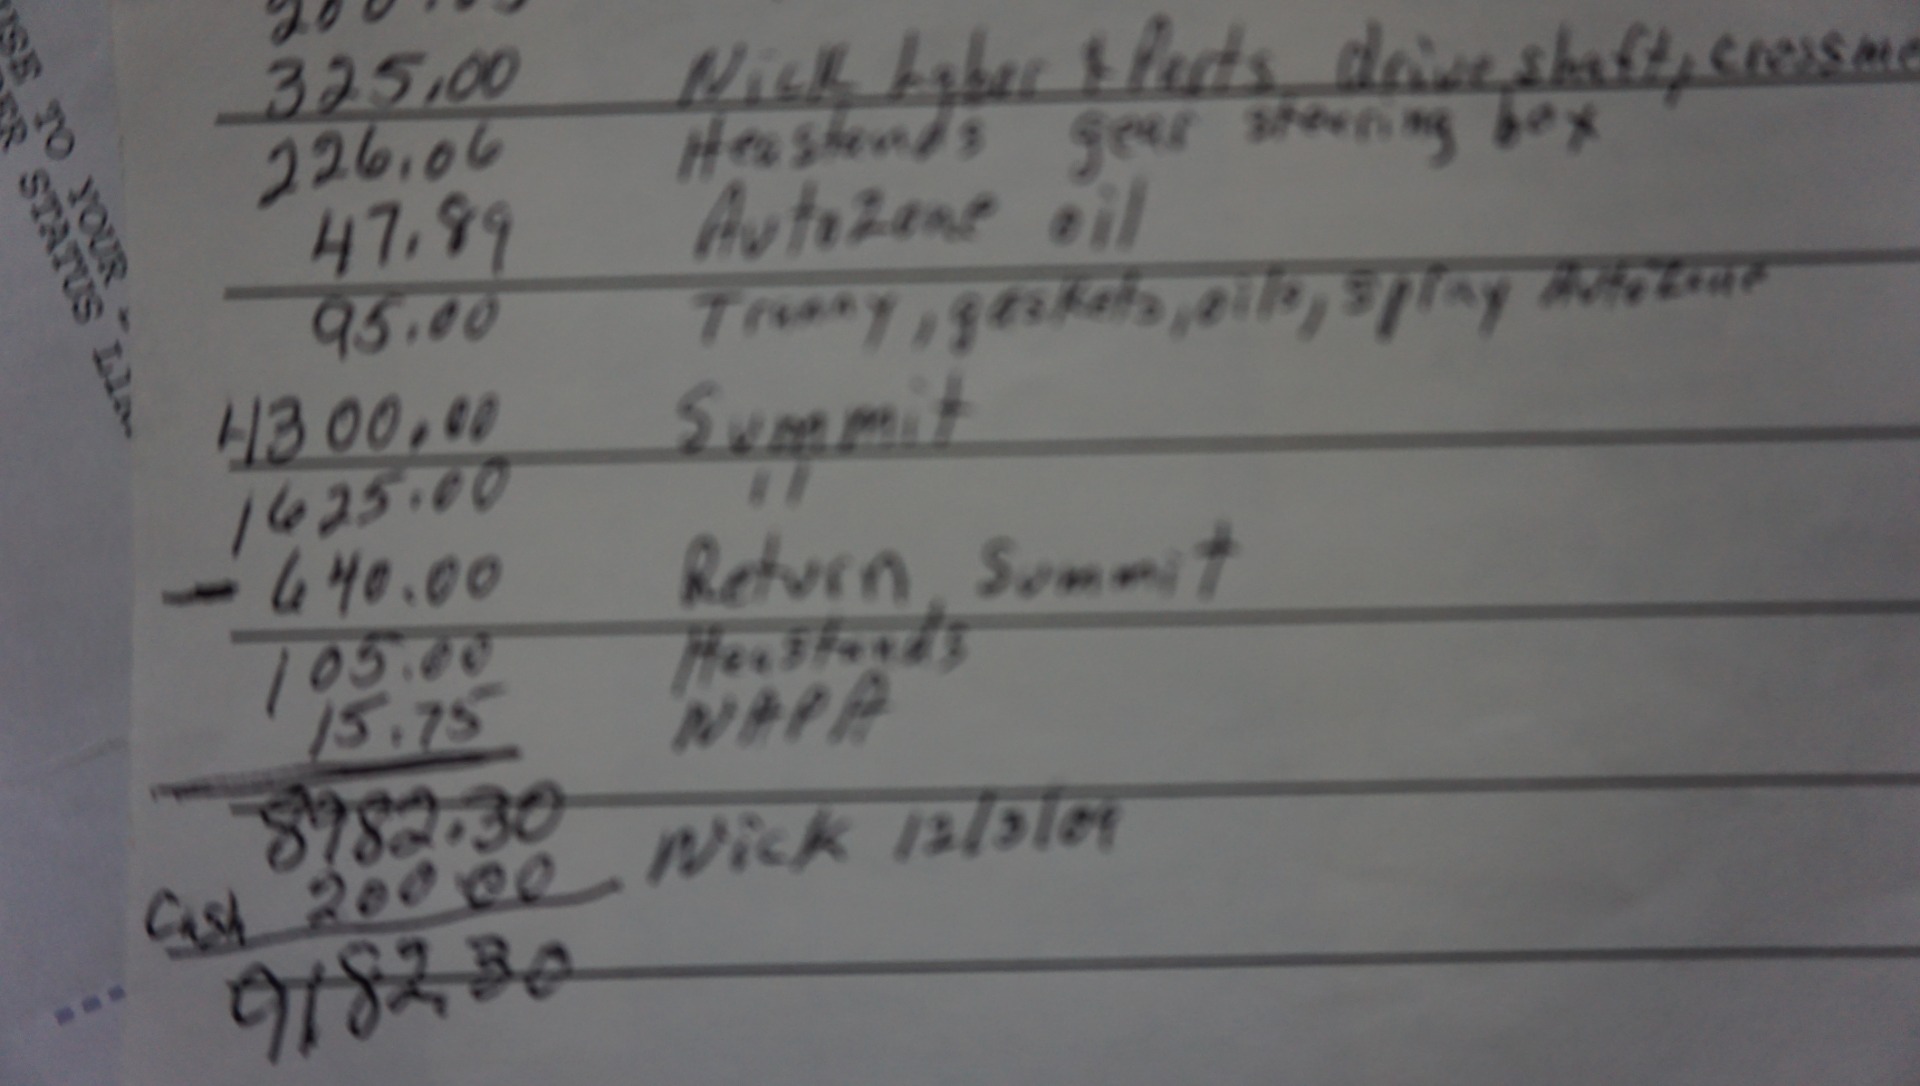 USE TO YOUR
STATUS
325.00 Nick Labor & Parts drive shaft,
226.06 Heastands gear steering box
47.89 AutoZone oil
95.00 Tranny, gaskets, oils, spray AutoZone
4300.00 Summit
1625.00 "
- 640.00 Return Summit
105.00 Heastands
15.75 NAPA
8982.30
Cash 200.00 Nick 12/3/09
9182.30